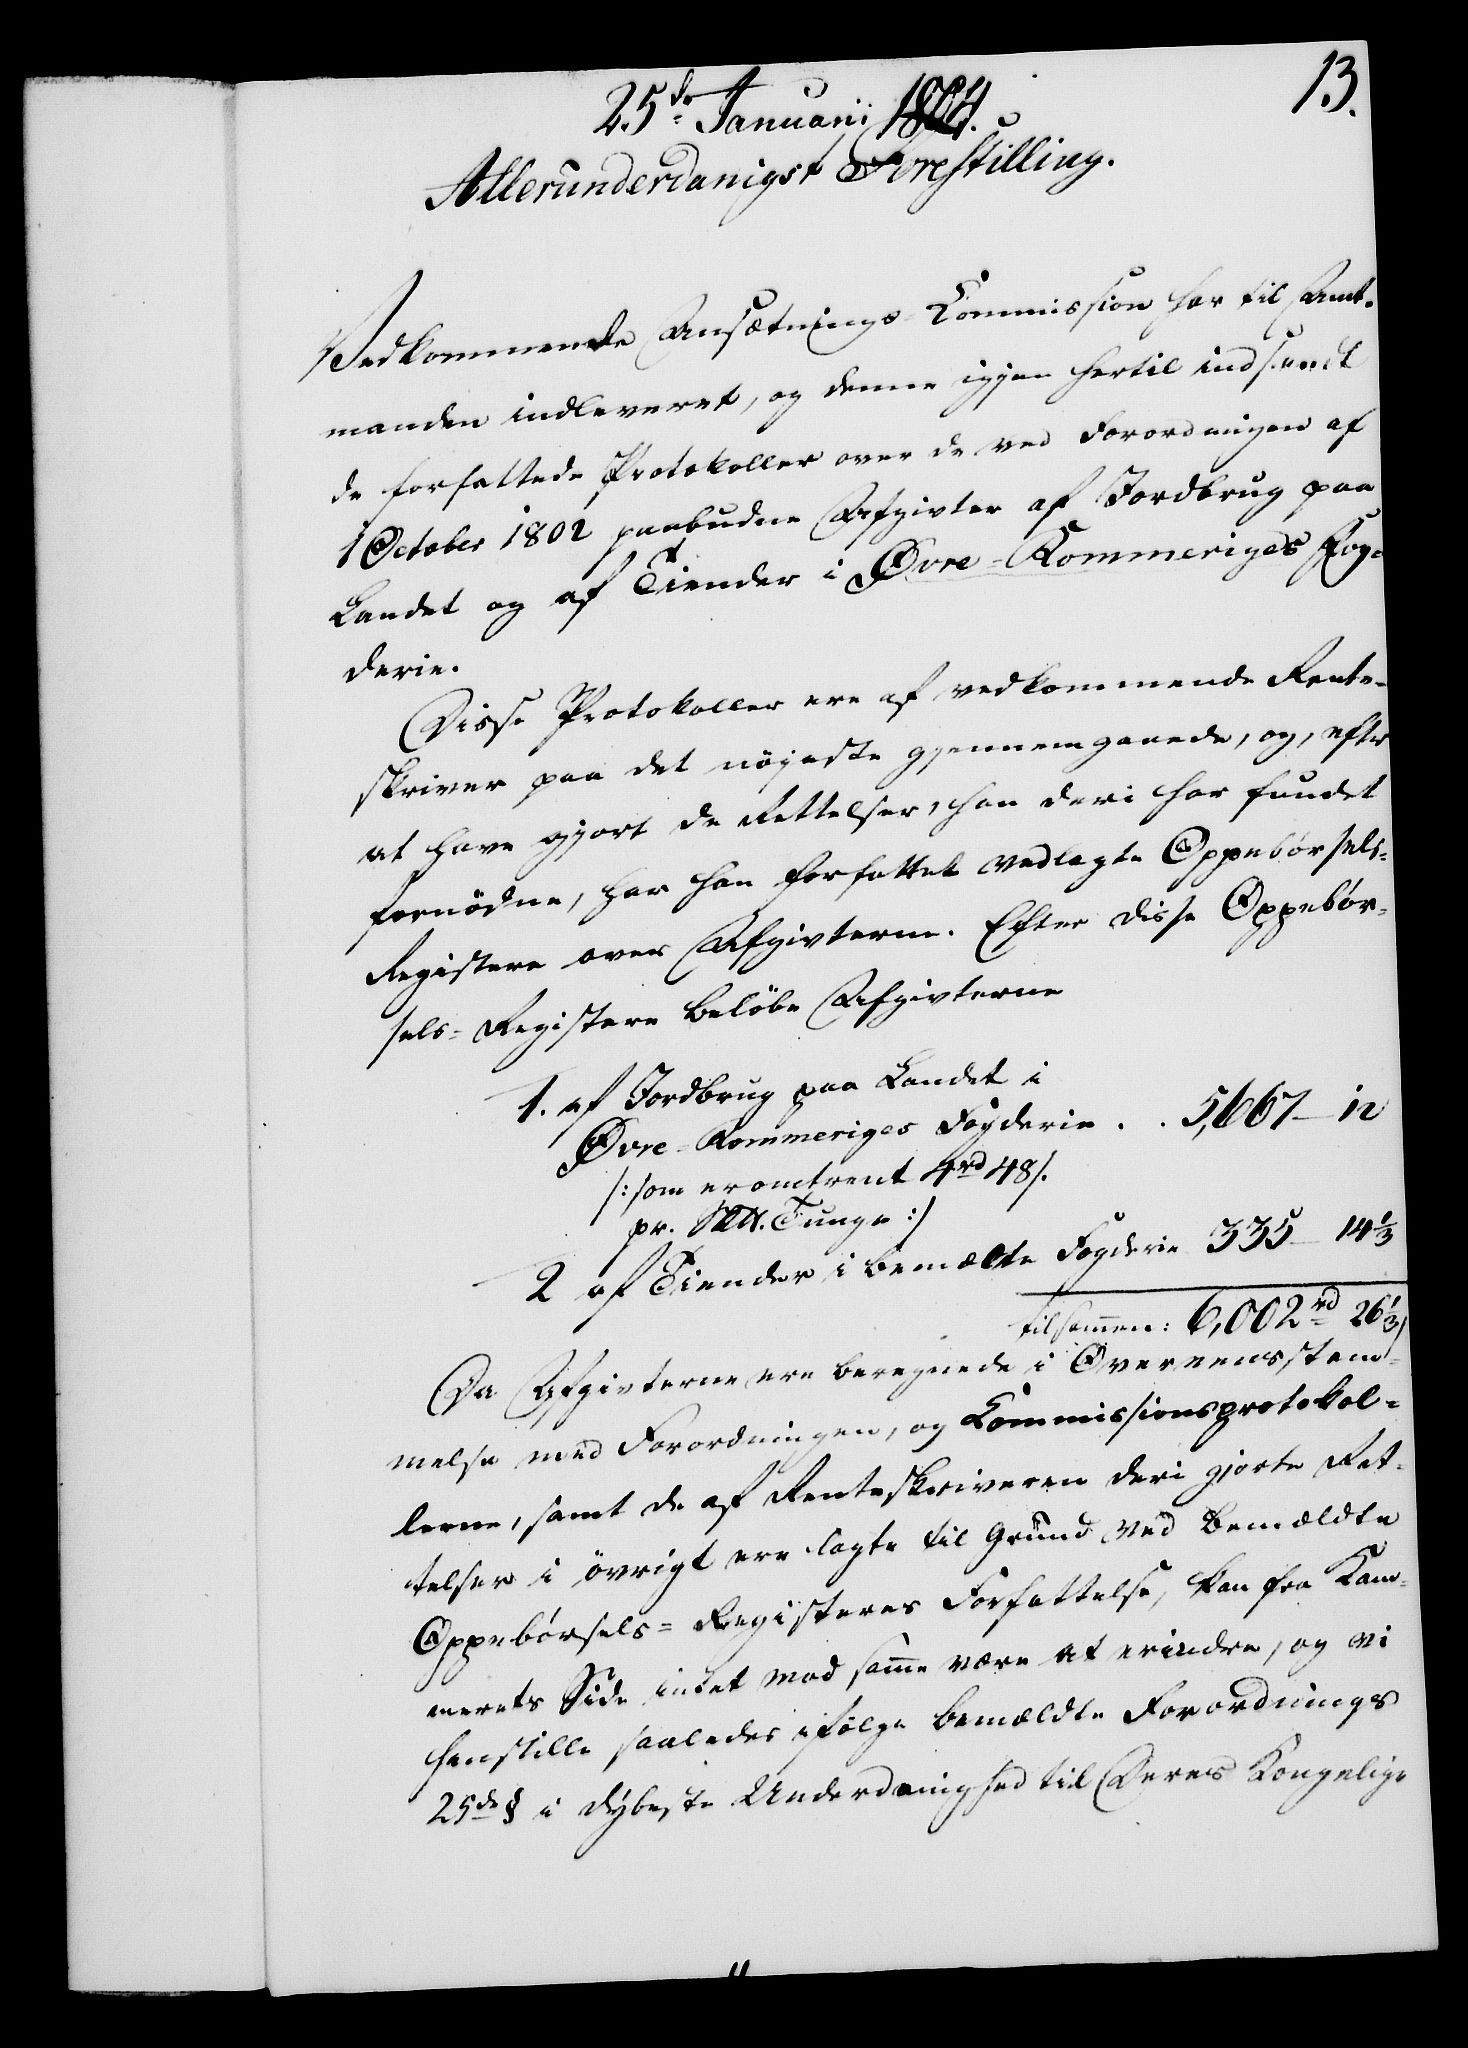 13.
25de Januarii 1804.
Allerunderdanigst Forestilling.
Vedkommende Ansætnings-Commission har til Amt-
manden indleveret, og denne igjen hertil indsendt
de forfattede Protokoller over de ved Forordningen af
1 October 1802 paabudne Afgivter af Jordbrug paa
Landet og af Tiender i Øvre-Rommeriges Fog-
derie.
Disse Protokoller ere af vedkommende Rente-
skriver paa det nöjeste gjennemgaaede, og, efter
at have gjort de Rettelser, han deri har fundet
fornödne, har han forfattet vedlagte Oppebörsels-
Registere over Afgivterne. Efter disse Oppebör-
sels-Registere belöbe Afgivterne
1. af Jordbrug paa Landet i
Øvre-Rommeriges Fogderie . . 5,667 - 12
/: som er omtrent 4rd 48/.
pr. Tunge :/
2 af Tiender i bemælte Fogderie 335 - 14 1/3
tilsamen: 6,002rd 26 1/3
Da Afgivterne ere beregnede i Overeensstem-
melse med Forordningen, og Commissionsprotokol-
lerne, samt de af Renteskriveren deri gjorte Ret-
telser i övrigt ere lagte til Grund ved bemældte
Oppebörsels-Registeres Forfattelse, kan fra Kam-
merets Side intet mod same være at erindre, og vi
henstille saaledes ifölge bemældte Forordnings
25de § i dybeste Underdanighed til Deres Kongelige